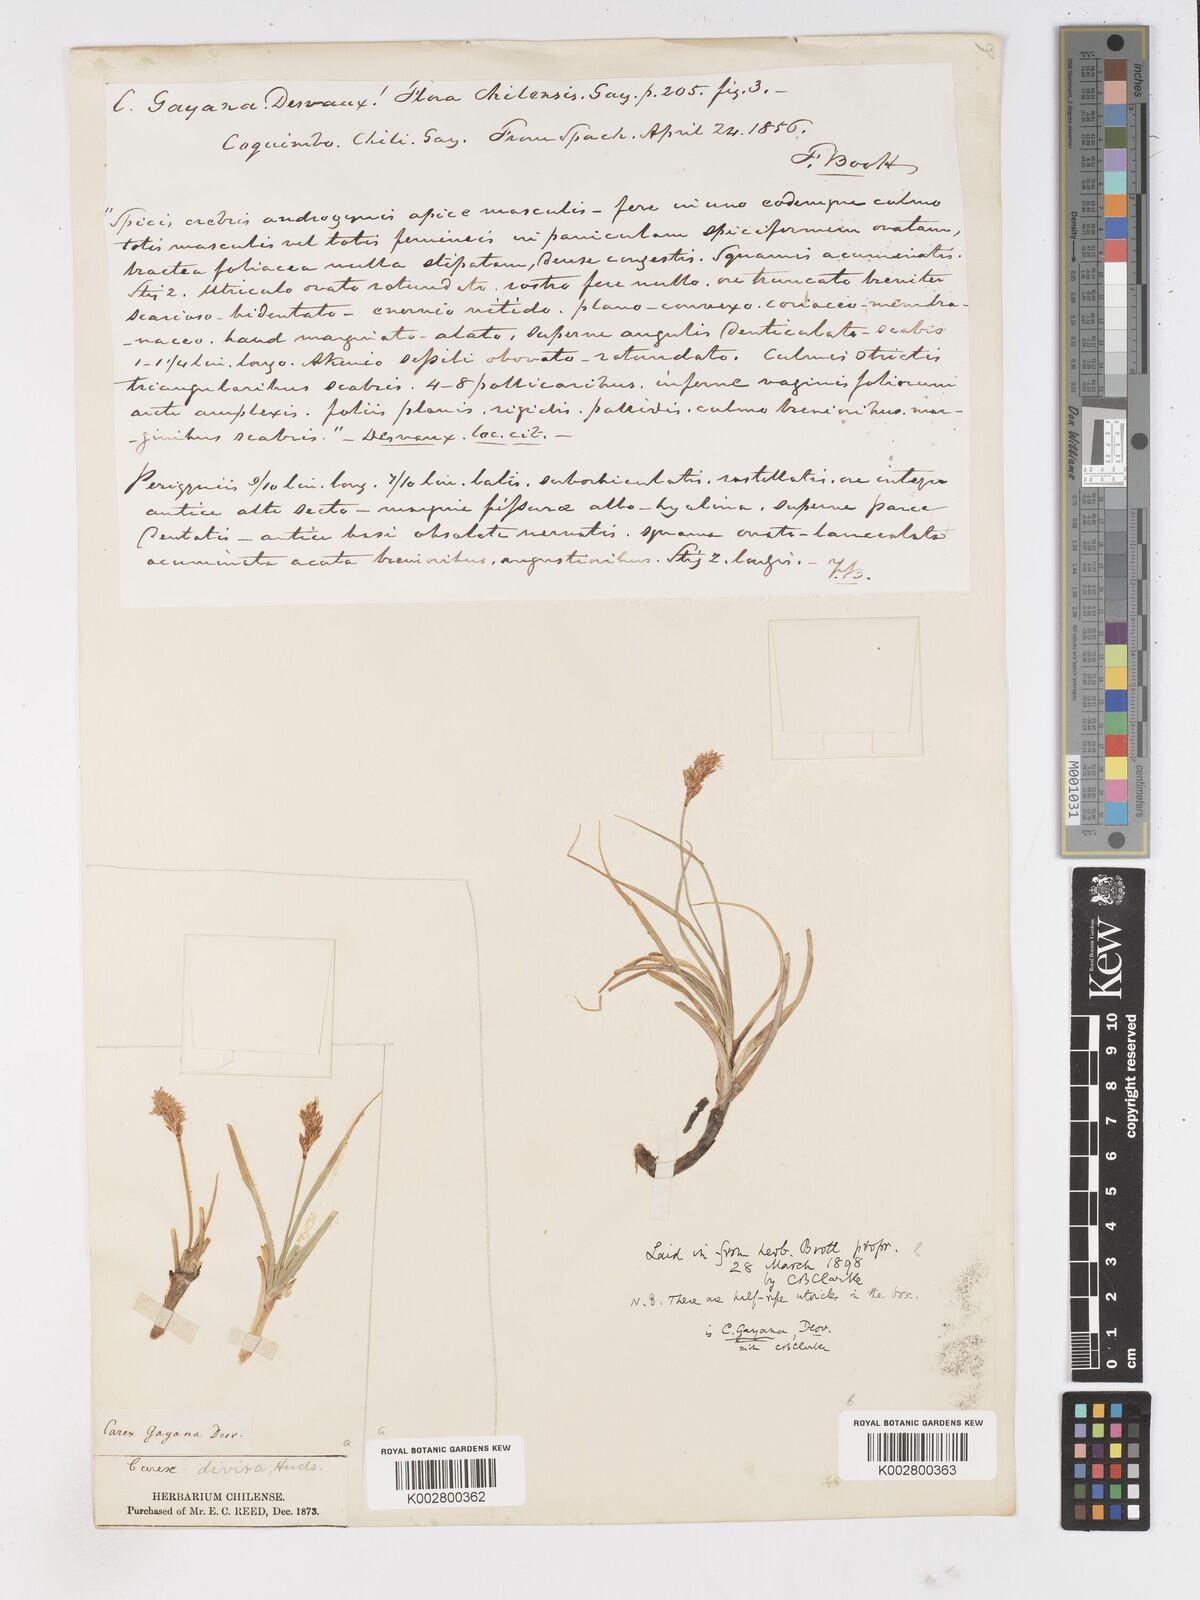 C. Gayana. Desvaux! Flora Chilensis. Gay. p. 205. fig. 3. —
Coquimbo. Chili. Gay. From Spach. April 24. 1856.
F. Boott
"Spicis crebris androgynis apice masculis – fere in uno eodemque culmo
totis masculis vel totis femineis in paniculam spiciformem ovatam,
bractea foliacea nulla stipatam, dense congestis. Squamis acuminatis.
Stig 2. Utriculo ovato rotundato. rostro fere nullo. ore truncato breviter
scarioso-bidentato – enervio nitido. plano-convexo. coriaceo-membra-
-naceo. haud marginato-alato, superne angulis denticulato-scabro
1–1 1/4 lin. longo. Akenio sessili obovato-rotundato. Culmis strictis
triangularibus scabris. 4–8 pollicaribus. inferne vaginis foliorum
arcte amplexis. foliis planis. rigidis. pallidis. culmo brevioribus. mar-
-ginibus scabris." – Desvaux. loc. cit. —
Perigyniis 9/10 lin. long. 7/10 lin. latis. suborbiculatis. rostellatis. ore integro
antice alte secto – margine fissuræ albo-hyalina. superne parce
dentatis – antice basi obsolete nervatis. squama ovato-lanceolata
acuminata acuta brevioribus. angustioribus. Stig 2. longis. –
Laid in from herb. Boott propr.
28 March 1898
by CBClarke
N.B. There are half-ripe utricles in the box.
is C. Gayana, Desv.
mihi CBClarke
Carex Gayana Desv.
Carex divisa, Huds.
HERBARIUM CHILENSE.
Purchased of Mr. E. C. REED, Dec. 1873.
a
a
b
ROYAL BOTANIC GARDENS KEW
K002800362
ROYAL BOTANIC GARDENS KEW
K002800363
Don Williams
M001031
centimeters
Kew
Royal Botanic Gardens
copyright reserved
0 1 2 3 4 5 6 7 8 9 10
cm